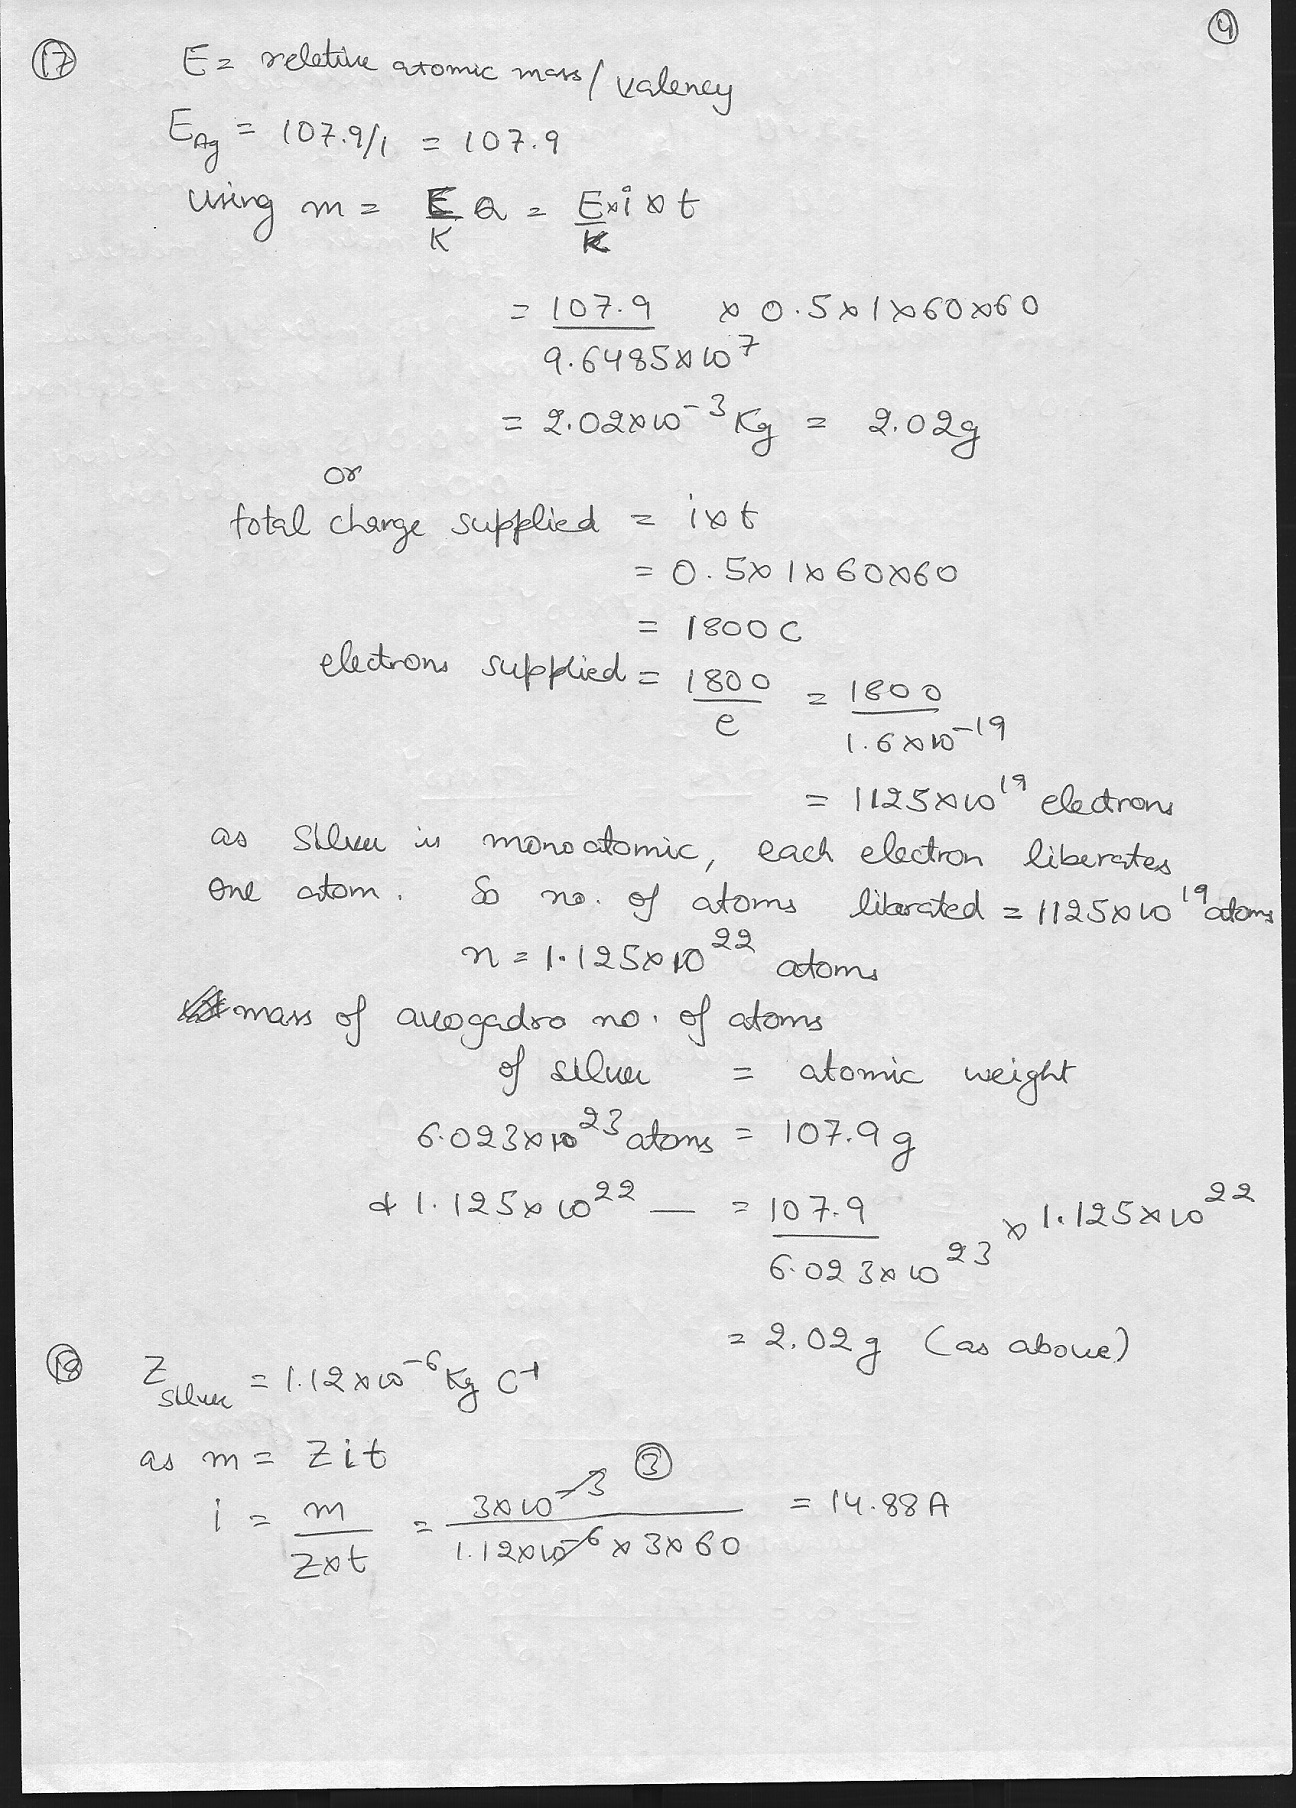 4
17 E = reletive atomic mass / valency
E_Ag = 107.9/1 = 107.9
using m = E/K Q = E×i×t/K
= 107.9/9.6485×10^7 × 0.5×1×60×60
= 2.02×10^-3 Kg = 2.02g
or
total charge supplied = i×t
= 0.5×1×60×60
= 1800 C
electrons supplied = 1800/e = 1800/1.6×10^-19
= 1125×10^19 electrons
as silver is monoatomic, each electron liberates
one atom. So no. of atoms liberated = 1125×10^19 atoms
n = 1.125×10^22 atoms
mass of avogadro no. of atoms
of silver = atomic weight
6.023×10^23 atoms = 107.9 g
& 1.125×10^22 — = 107.9/6.023×10^23 × 1.125×10^22
= 2.02g (as above)
18 Z_silver = 1.12×10^-6 Kg C^-1
as m = Zit
i = m/Z×t = 3×10^-3/1.12×10^-6×3×60 = 14.88A
3